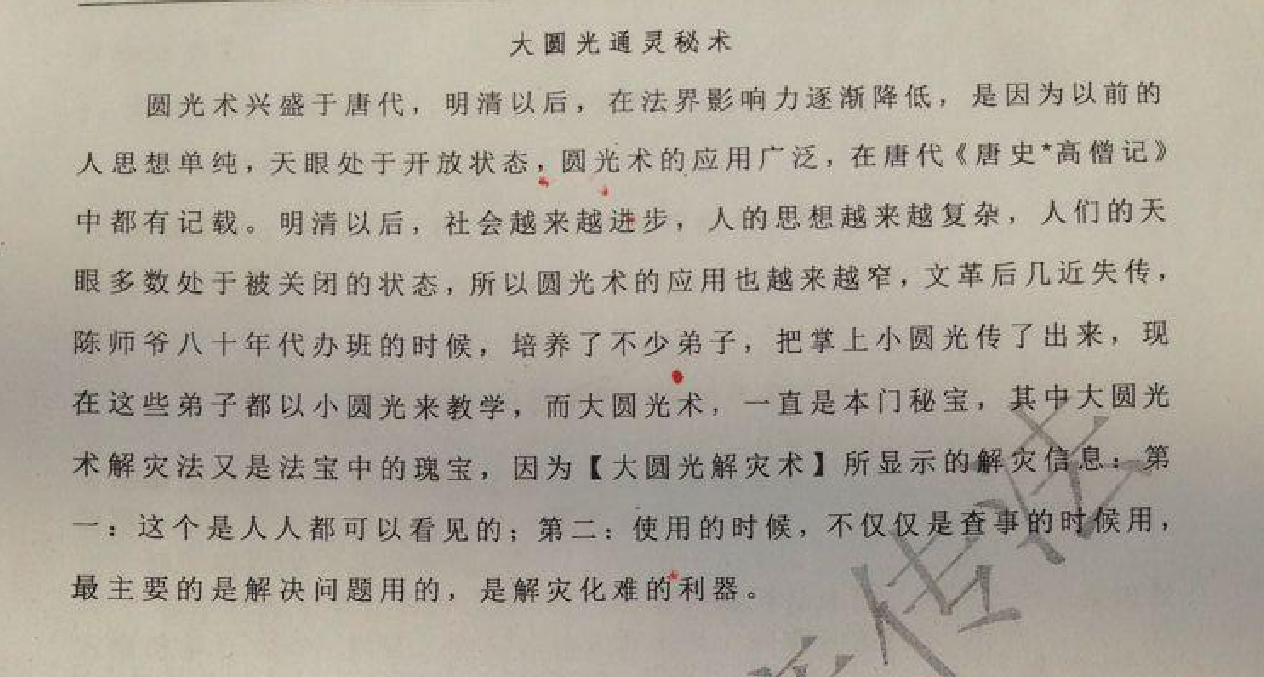 大圆光通灵秘术
圆光术兴盛于唐代，明清以后，在法界影响力逐渐降低，是因为以前的
人思想单纯，天眼处于开放状态，圆光术的应用广泛，在唐代《唐史*高僧记》
中都有记载。明清以后，社会越来越进步，人的思想越来越复杂，人们的天
眼多数处于被关闭的状态，所以圆光术的应用也越来越窄，文革后几近失传，
陈师爷八十年代办班的时候，培养了不少弟子，把掌上小圆光传了出来，现
在这些弟子都以小圆光来教学，而大圆光术，一直是本门秘宝，其中大圆光
术解灾法又是法宝中的瑰宝，因为【大圆光解灾术】所显示的解灾信息：第
一：这个是人人都可以看见的；第二：使用的时候，不仅仅是查事的时候用，
最主要的是解决问题用的，是解灾化难的利器。